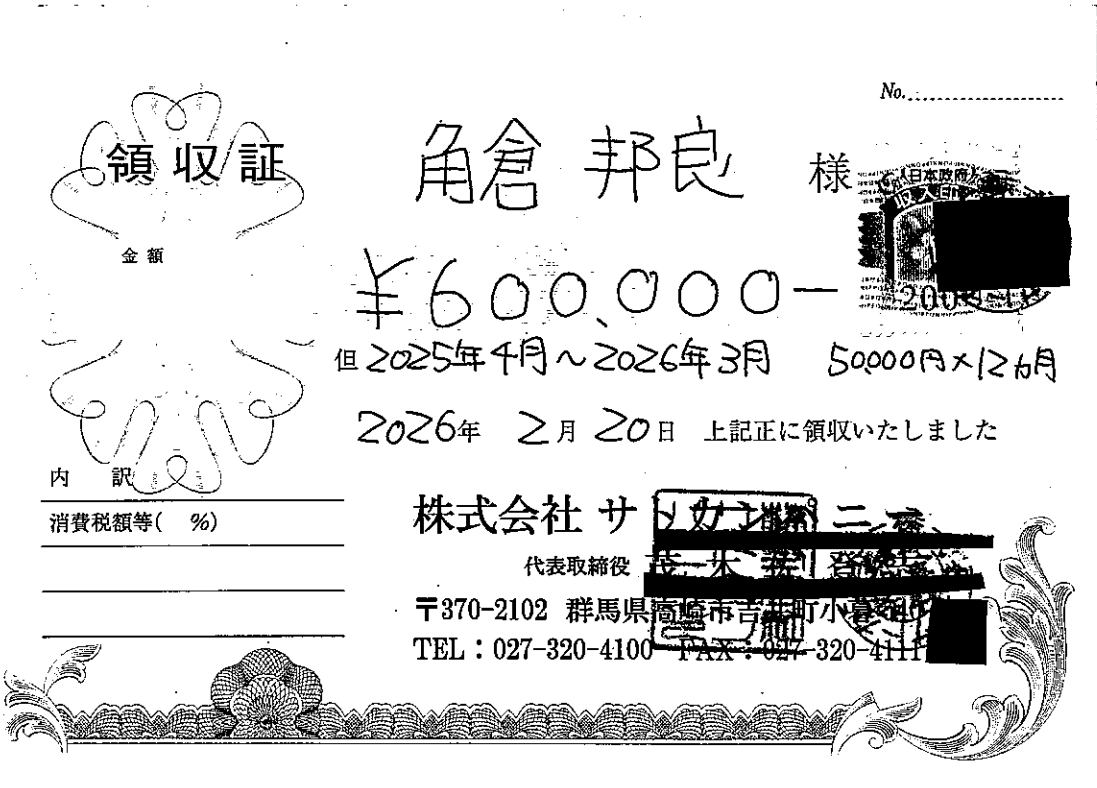 No.
領収証
角倉 邦良 様
日本政府
収入印
200
金額
¥600,000-
但 2025年4月～2026年3月 50000円×12ヵ月
2026年 2月 20日 上記正に領収いたしました
内訳
消費税額等( %)
株式会社 サトカンパニー
代表取締役
〒370-2102 群馬県高崎市吉井町小暮
TEL：027-320-4100 FAX：027-320-4111